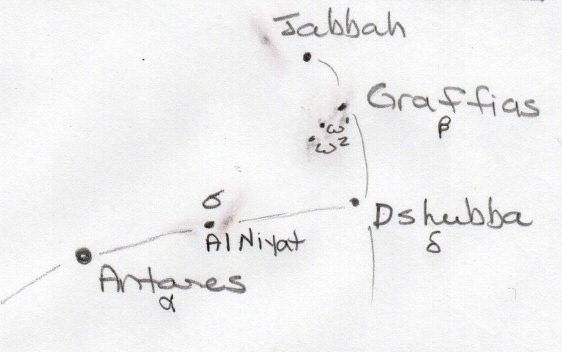 Jabbah
Graffias
β
ω¹
ω²
σ
Al Niyat
Dshubba
δ
Antares
α